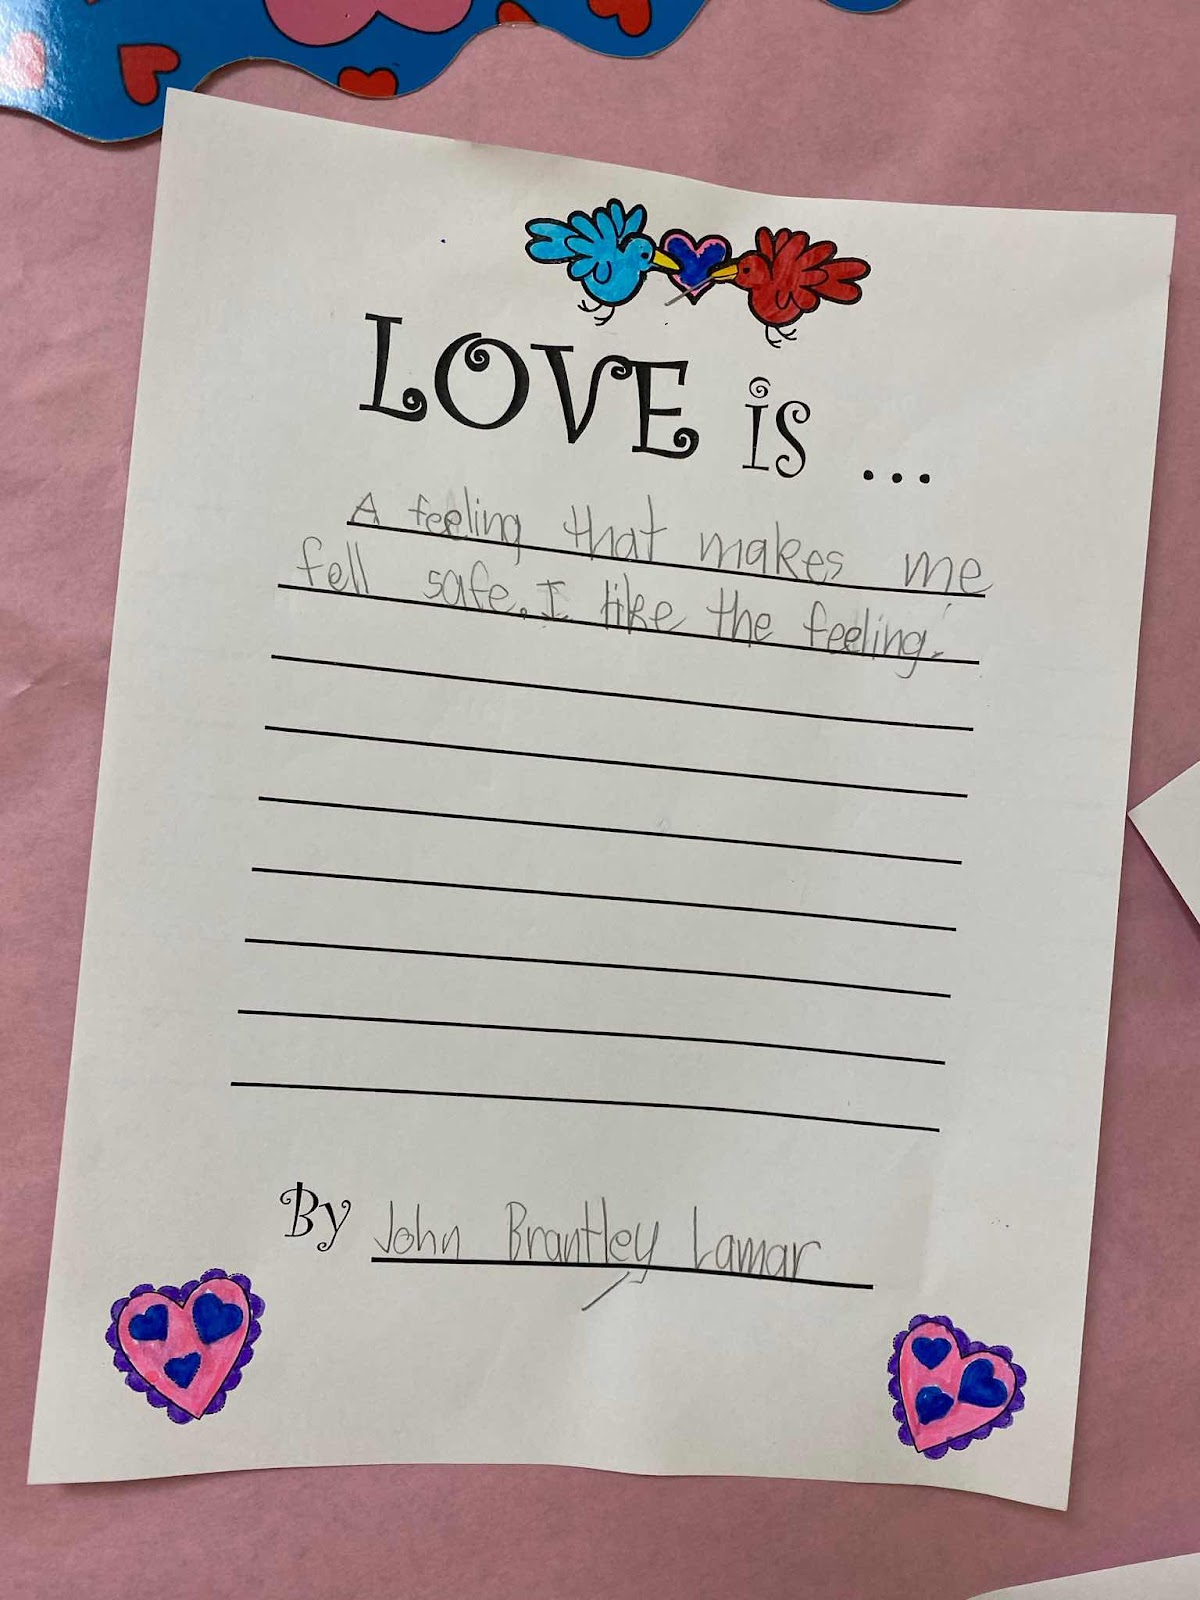 LOVE is ...
A feeling that makes me
fell safe. I like the feeling.
By John Brantley Lamar